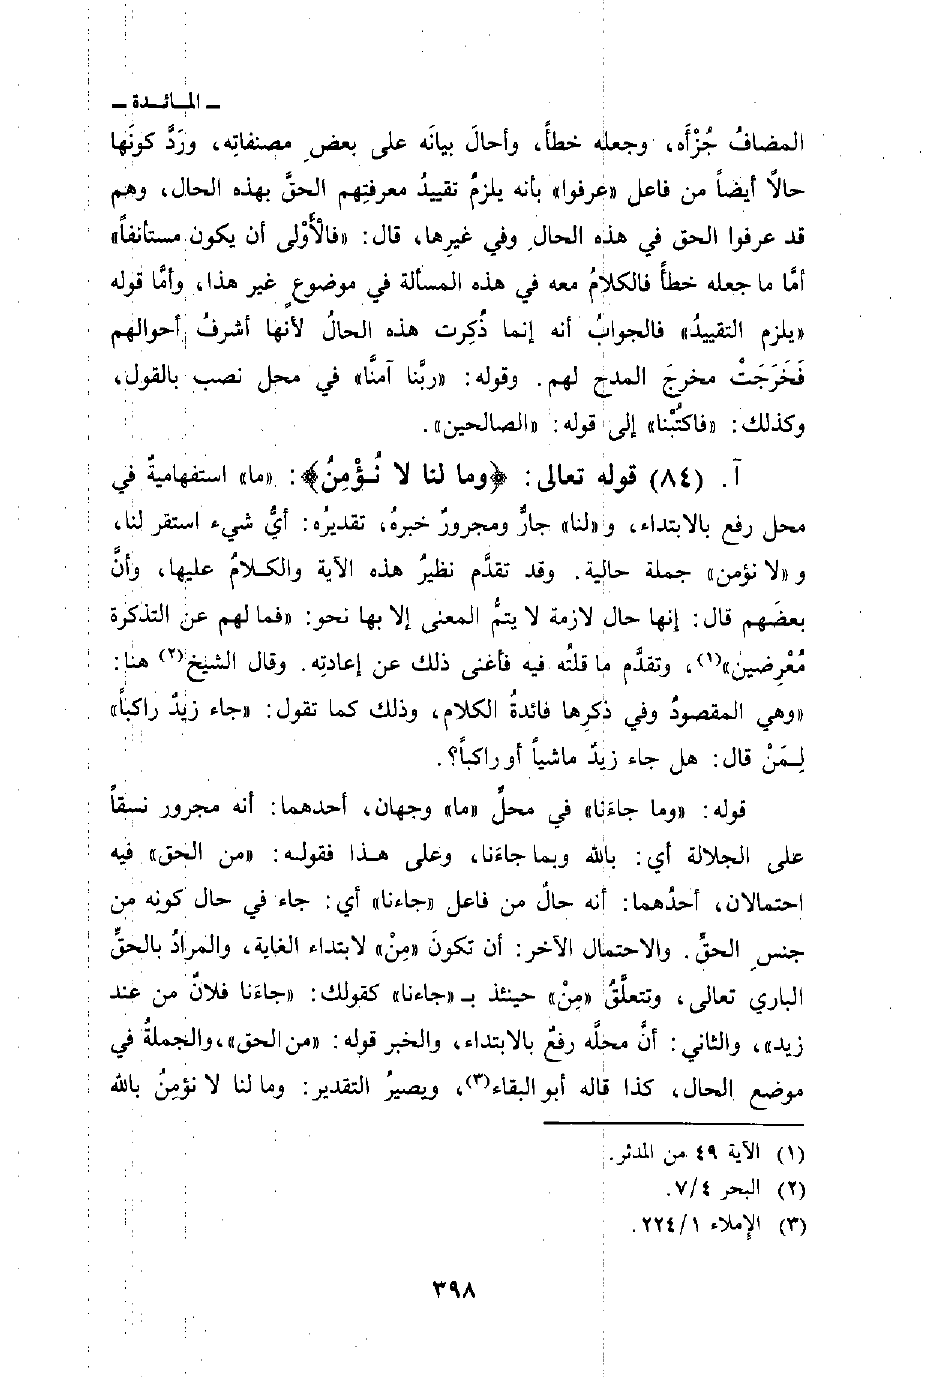 ـ المـائـدة ـ
المضافُ جُزْأَه، وجعله خطأً، وأحالَ بيانَه على بعضِ مصنفاتِه، ورَدَّ كونَها
حالًا أيضاً من فاعل «عرفوا» بأنه يلزمُ تقييدُ معرفتِهم الحقَّ بهذه الحال، وهم
قد عرفوا الحق في هذه الحالِ وفي غيرِها، قال: «فالأَوْلى أن يكون مستأنفاً»
أمَّا ما جعله خطأً فالكلامُ معه في هذه المسألة في موضوعٍ غير هذا، وأمَّا قوله
«يلزم التقييدُ» فالجوابُ أنه إنما ذُكِرت هذه الحالُ لأنها أشرفُ أحوالهم
فَخَرَجَتْ مخرجَ المدح لهم. وقوله: «ربَّنا آمنَّا» في محل نصب بالقول،
وكذلك: «فاكتُبْنا» إلى قوله: «الصالحين».
آ. (٨٤) قوله تعالى: ﴿وما لنا لا نُؤْمِنُ﴾: «ما» استفهاميةٌ في
محل رفع بالابتداء، و«لنا» جارٌّ ومجرورٌ خبرهُ، تقديرُه: أيُّ شيء استقر لنا،
و«لا نؤمن» جملة حالية. وقد تقدَّم نظيرُ هذه الآية والكـلامُ عليها، وأنَّ
بعضَهم قال: إنها حال لازمة لا يتمُّ المعنى إلا بها نحو: «فما لهم عن التذكرة
مُعْرِضين»(١)، وتقدَّم ما قلتُه فيه فأغنى ذلك عن إعادتِه. وقال الشيخ(٢) هنا:
«وهي المقصودُ وفي ذكرِها فائدةُ الكلام، وذلك كما تقول: «جاء زيدٌ راكباً»
لِـمَنْ قال: هل جاء زيدٌ ماشياً أو راكباً؟.
قوله: «وما جاءَنا» في محلِّ «ما» وجهان، أحدهما: أنه مجرور نسقاً
على الجلالة أي: بالله وبما جاءَنا، وعلى هـذا فقولـه: «من الحق» فيه
احتمالان، أحدُهما: أنه حالٌ من فاعل «جاءنا» أي: جاء في حال كونِه من
جنسِ الحقِّ. والاحتمال الآخر: أن تكونَ «مِنْ» لابتداء الغاية، والمرادُ بالحقِّ
الباري تعالى، وتتعلَّقُ «مِنْ» حينئذ بـ «جاءنا» كقولك: «جاءَنا فلانٌ من عند
زيد»، والثاني: أنَّ محلَّه رفعٌ بالابتداء، والخبر قوله: «من الحق»،والجملةُ في
موضع الحال، كذا قاله أبو البقاء(٣)، ويصيرُ التقدير: وما لنا لا نؤمِنُ بالله
(١) الآية ٤٩ من المدثر.
(٢) البحر ٧/٤.
(٣) الإملاء ٢٢٤/١.
٣٩٨